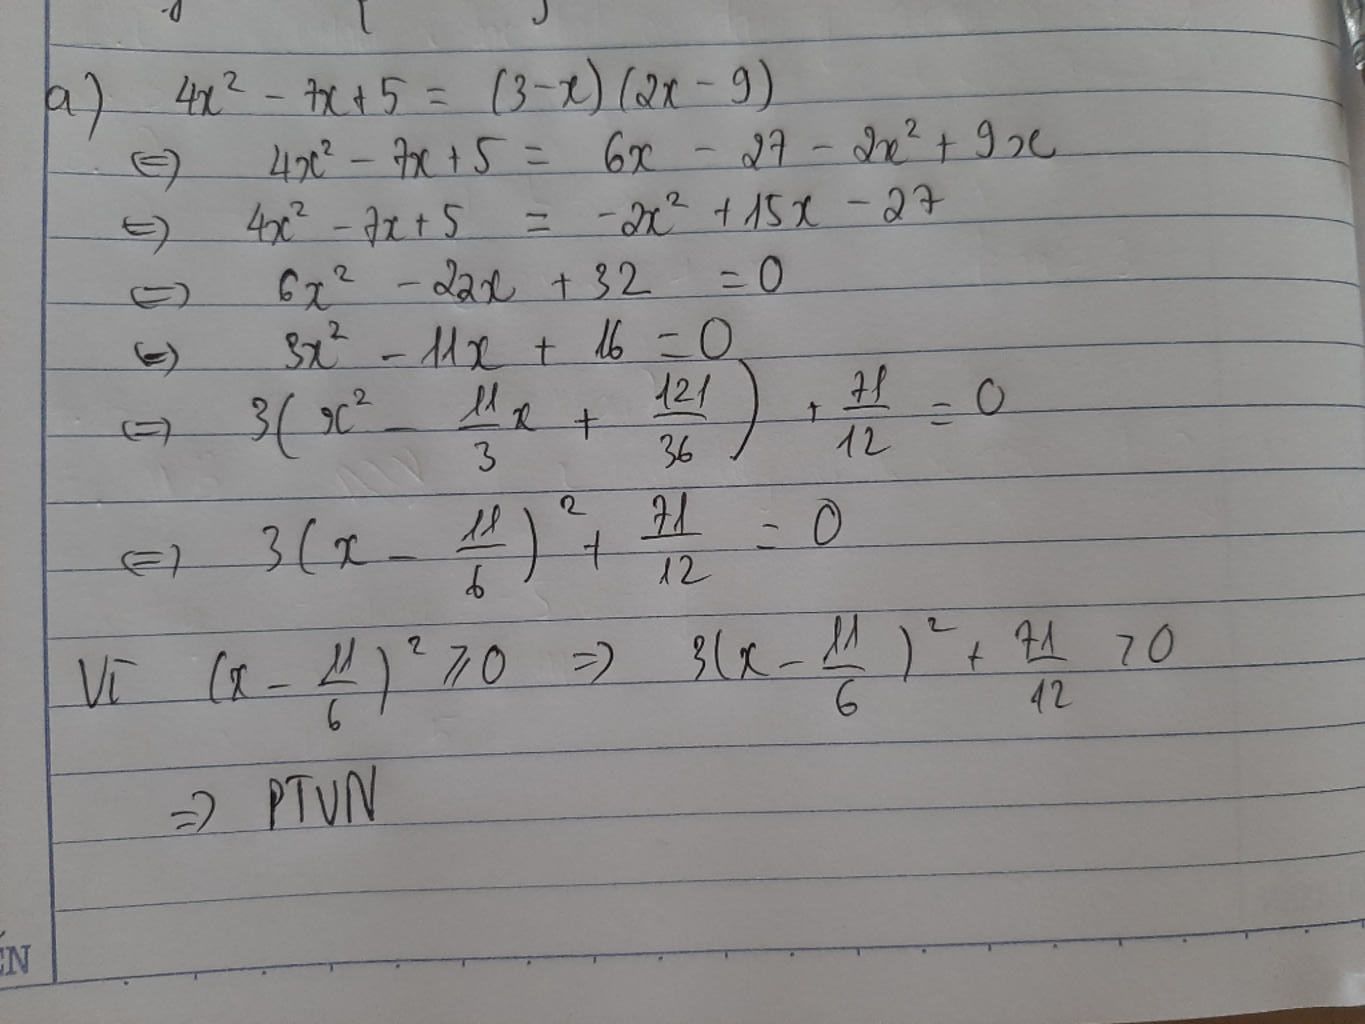 a) 4x² - 7x + 5 = (3-x)(2x - 9)
⇔ 4x² - 7x + 5 = 6x - 27 - 2x² + 9x
⇔ 4x² - 7x + 5 = -2x² + 15x - 27
⇔ 6x² - 22x + 32 = 0
⇔ 3x² - 11x + 16 = 0
⇔ 3(x² - 11/3 x + 121/36) + 71/12 = 0
⇔ 3(x - 11/6)² + 71/12 = 0
Vì (x - 11/6)² ≥ 0 ⇒ 3(x - 11/6)² + 71/12 > 0
⇒ PTVN